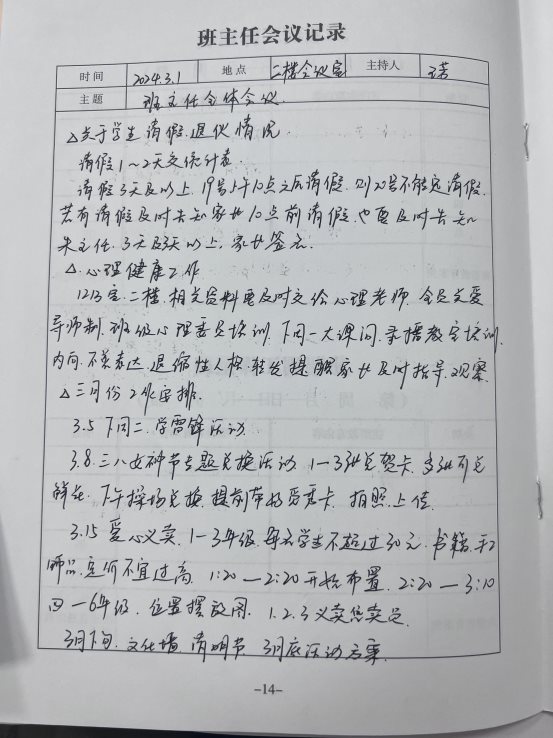 班主任会议记录
时间 2024.3.1 地点 二楼会议室 主持人
主题 班主任全体会议
△关于学生请假、退伙情况.
请假1~2天交统计表.
请假3天及以上, 19号上午10点之后请假, 则20号不能完请假.
若有请假及时告知家长10点前请假, 也要及时告知
朱主任. 3天及3天以上, 家长签字.
△心理健康工作
1213室. 二楼. 相关资料要及时交给心理老师. 全员关爱
导师制. 班级心理委员培训. 下周一大课间. 录播教室培训.
内向、不善表达、退缩性人格. 转发提醒家长及时指导、观察.
△三月份工作安排.
3.5 下周二. 学雷锋活动.
3.8. 三八女神节专题兑换活动. 1—3张兑贺卡. 多张可兑
鲜花. 下午操场兑换. 提前带好贺卡. 拍照上传.
3.15 爱心义卖. 1—3年级. 每名学生不超过30元. 书籍、手工
饰品. 定价不宜过高. 1:20—2:20开始布置. 2:20—3:10
四—6年级. 位置摆放图. 1.2.3义卖售卖员.
3月下旬. 文化墙. 清明节. 3月底活动方案.
-14-